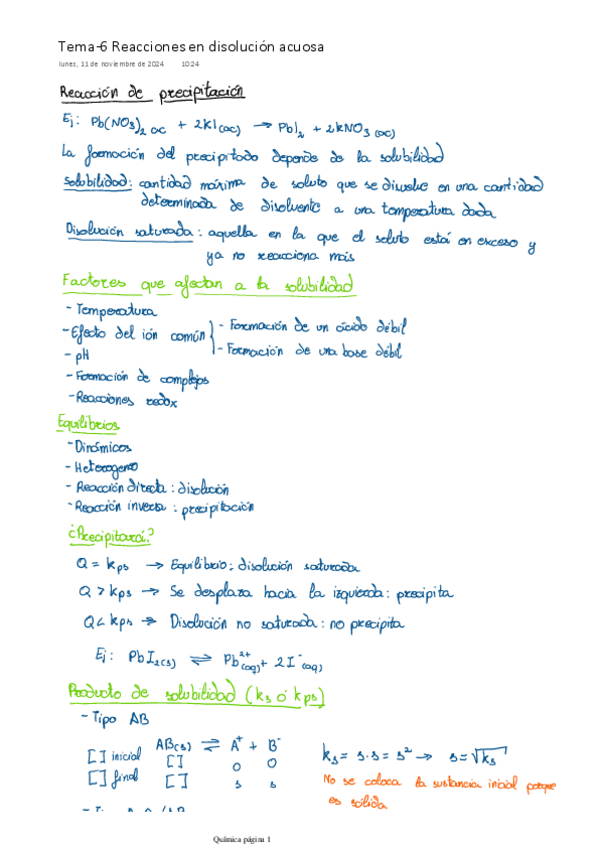 Tema-6 Reacciones en disolución acuosa
lunes, 11 de noviembre de 2024 10:24
Reacción de precipitación
Ej: Pb(NO3)2 ac + 2KI(ac) → PbI2 + 2KNO3 (ac)
La formación del precipitado depende de la solubilidad
Solubilidad: cantidad máxima de soluto que se disuelve en una cantidad
determinada de disolvente a una temperatura dada
Disolución saturada: aquella en la que el soluto está en exceso y
ya no reacciona más
Factores que afectan a la solubilidad
- Temperatura
- Efecto del ión común
- pH
- Formación de un ácido débil
- Formación de una base débil
- Formación de complejos
- Reacciones redox
Equilibrios
- Dinámicos
- Heterogeneo
- Reacción directa: disolución
- Reacción inversa: precipitación
¿Precipitará?
Q = kps → Equilibrio: disolución saturada
Q > kps → Se desplaza hacia la izquierda: precipita
Q < kps → Disolución no saturada: no precipita
Ej: PbI2(s) ⇌ Pb2+(aq) + 2I-(aq)
Producto de solubilidad (ks ó kps)
- Tipo AB
AB(s) ⇌ A+ + B-
[] inicial [] 0 0
[] final [] s s
ks = s·s = s² → s = √ks
No se coloca la sustancia inicial porque
es sólida
Química página 1